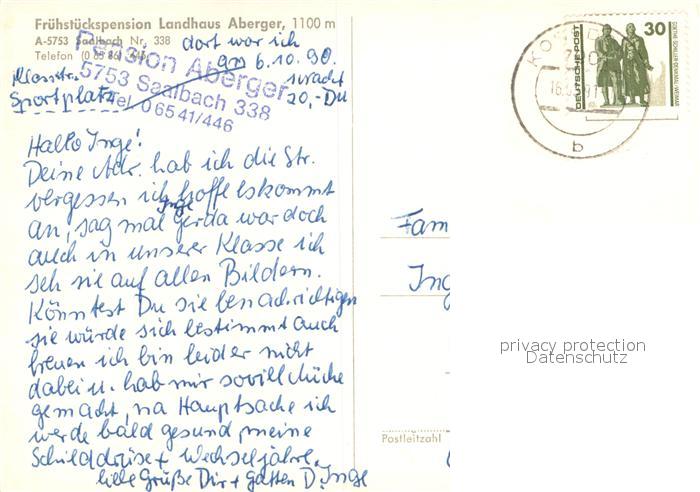 Frühstückspension Landhaus Aberger, 1100 m
A-5753 Saalbach Nr. 338 dort war ich
Telefon (0 65 41) 446 am 6.10.90.
Pension Aberger
5753 Saalbach 338
Tel. 06541/446
Klassentr.
Sportplatz 20,- Du
Hallo Inge!
Deine Adr. hab ich die Str.
vergessen ich hoffe es kommt
an, sag mal Inge Gerda war doch
auch in unserer Klasse ich
seh sie auf allen Bildern.
Könntest Du sie benachrichtigen
sie würde sich bestimmt auch
freuen ich bin leider nicht
dabei u. hab mir soviell Mühe
gemacht, na Hauptsache ich
werde bald gesund, meine
Schilddrüse + Wechseljahre.
liebe Grüße Dir + Gatten D. Inge
DEUTSCHE POST
30
GOETHE-SCHILLER-DENKMAL WEIMAR
b
Fam
Ing
privacy protection
Datenschutz
Postleitzahl